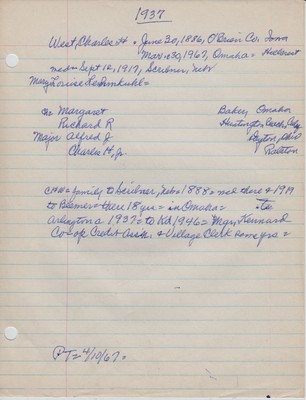 1937
West, Charles H. * June 30, 1886, O'Brien Co. Iowa
Mar. 30, 1967, Omaha = Hillcrest
md = Sept 12, 1917, Scribner, Nebr
Mary Louise
Mrs Margaret Baker, Omaha
Richard R Huntington Beach, Calif
Major Alfred J Dayton, Ohio
Charles H, Jr. Ralston
family to Scribner, Nebr 1888 = md there & 1919
to Blencoe = there 18 yrs = in Omaha = to
Arlington c. 1937 = to Kd 1946 = Mgr, Kennard
Co-op Credit Assn. & Village Clerk some yrs =
PT = 4/10/67 =